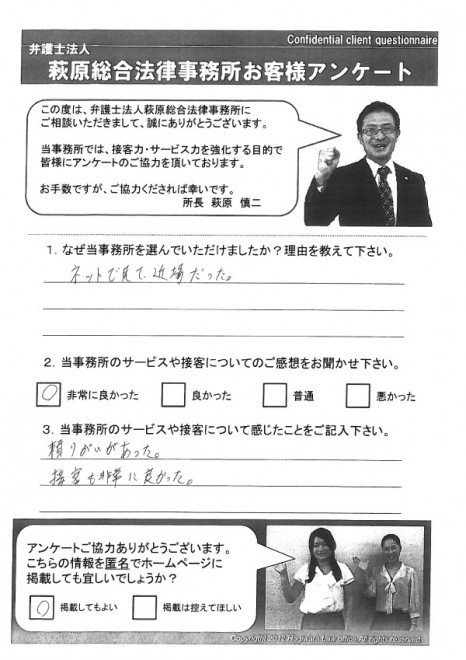 Confidential client questionnaire
弁護士法人
萩原総合法律事務所お客様アンケート
この度は、弁護士法人萩原総合法律事務所に
ご相談いただきまして、誠にありがとうございます。
当事務所では、接客力・サービス力を強化する目的で
皆様にアンケートのご協力を頂いております。
お手数ですが、ご協力くだされば幸いです。
所長 萩原 慎二
1. なぜ当事務所を選んでいただけましたか？理由を教えて下さい。
ネットで見て、近場だった。
2. 当事務所のサービスや接客についてのご感想をお聞かせ下さい。
○ 非常に良かった 良かった 普通 悪かった
3. 当事務所のサービスや接客について感じたことをご記入下さい。
頼りがいがあった。
接客も非常に良かった。
アンケートご協力ありがとうございます。
こちらの情報を匿名でホームページに
掲載しても宜しいでしょうか？
○ 掲載してもよい 掲載は控えてほしい
Copyright© 2012 Hagiwara Law office.All rights reserved.